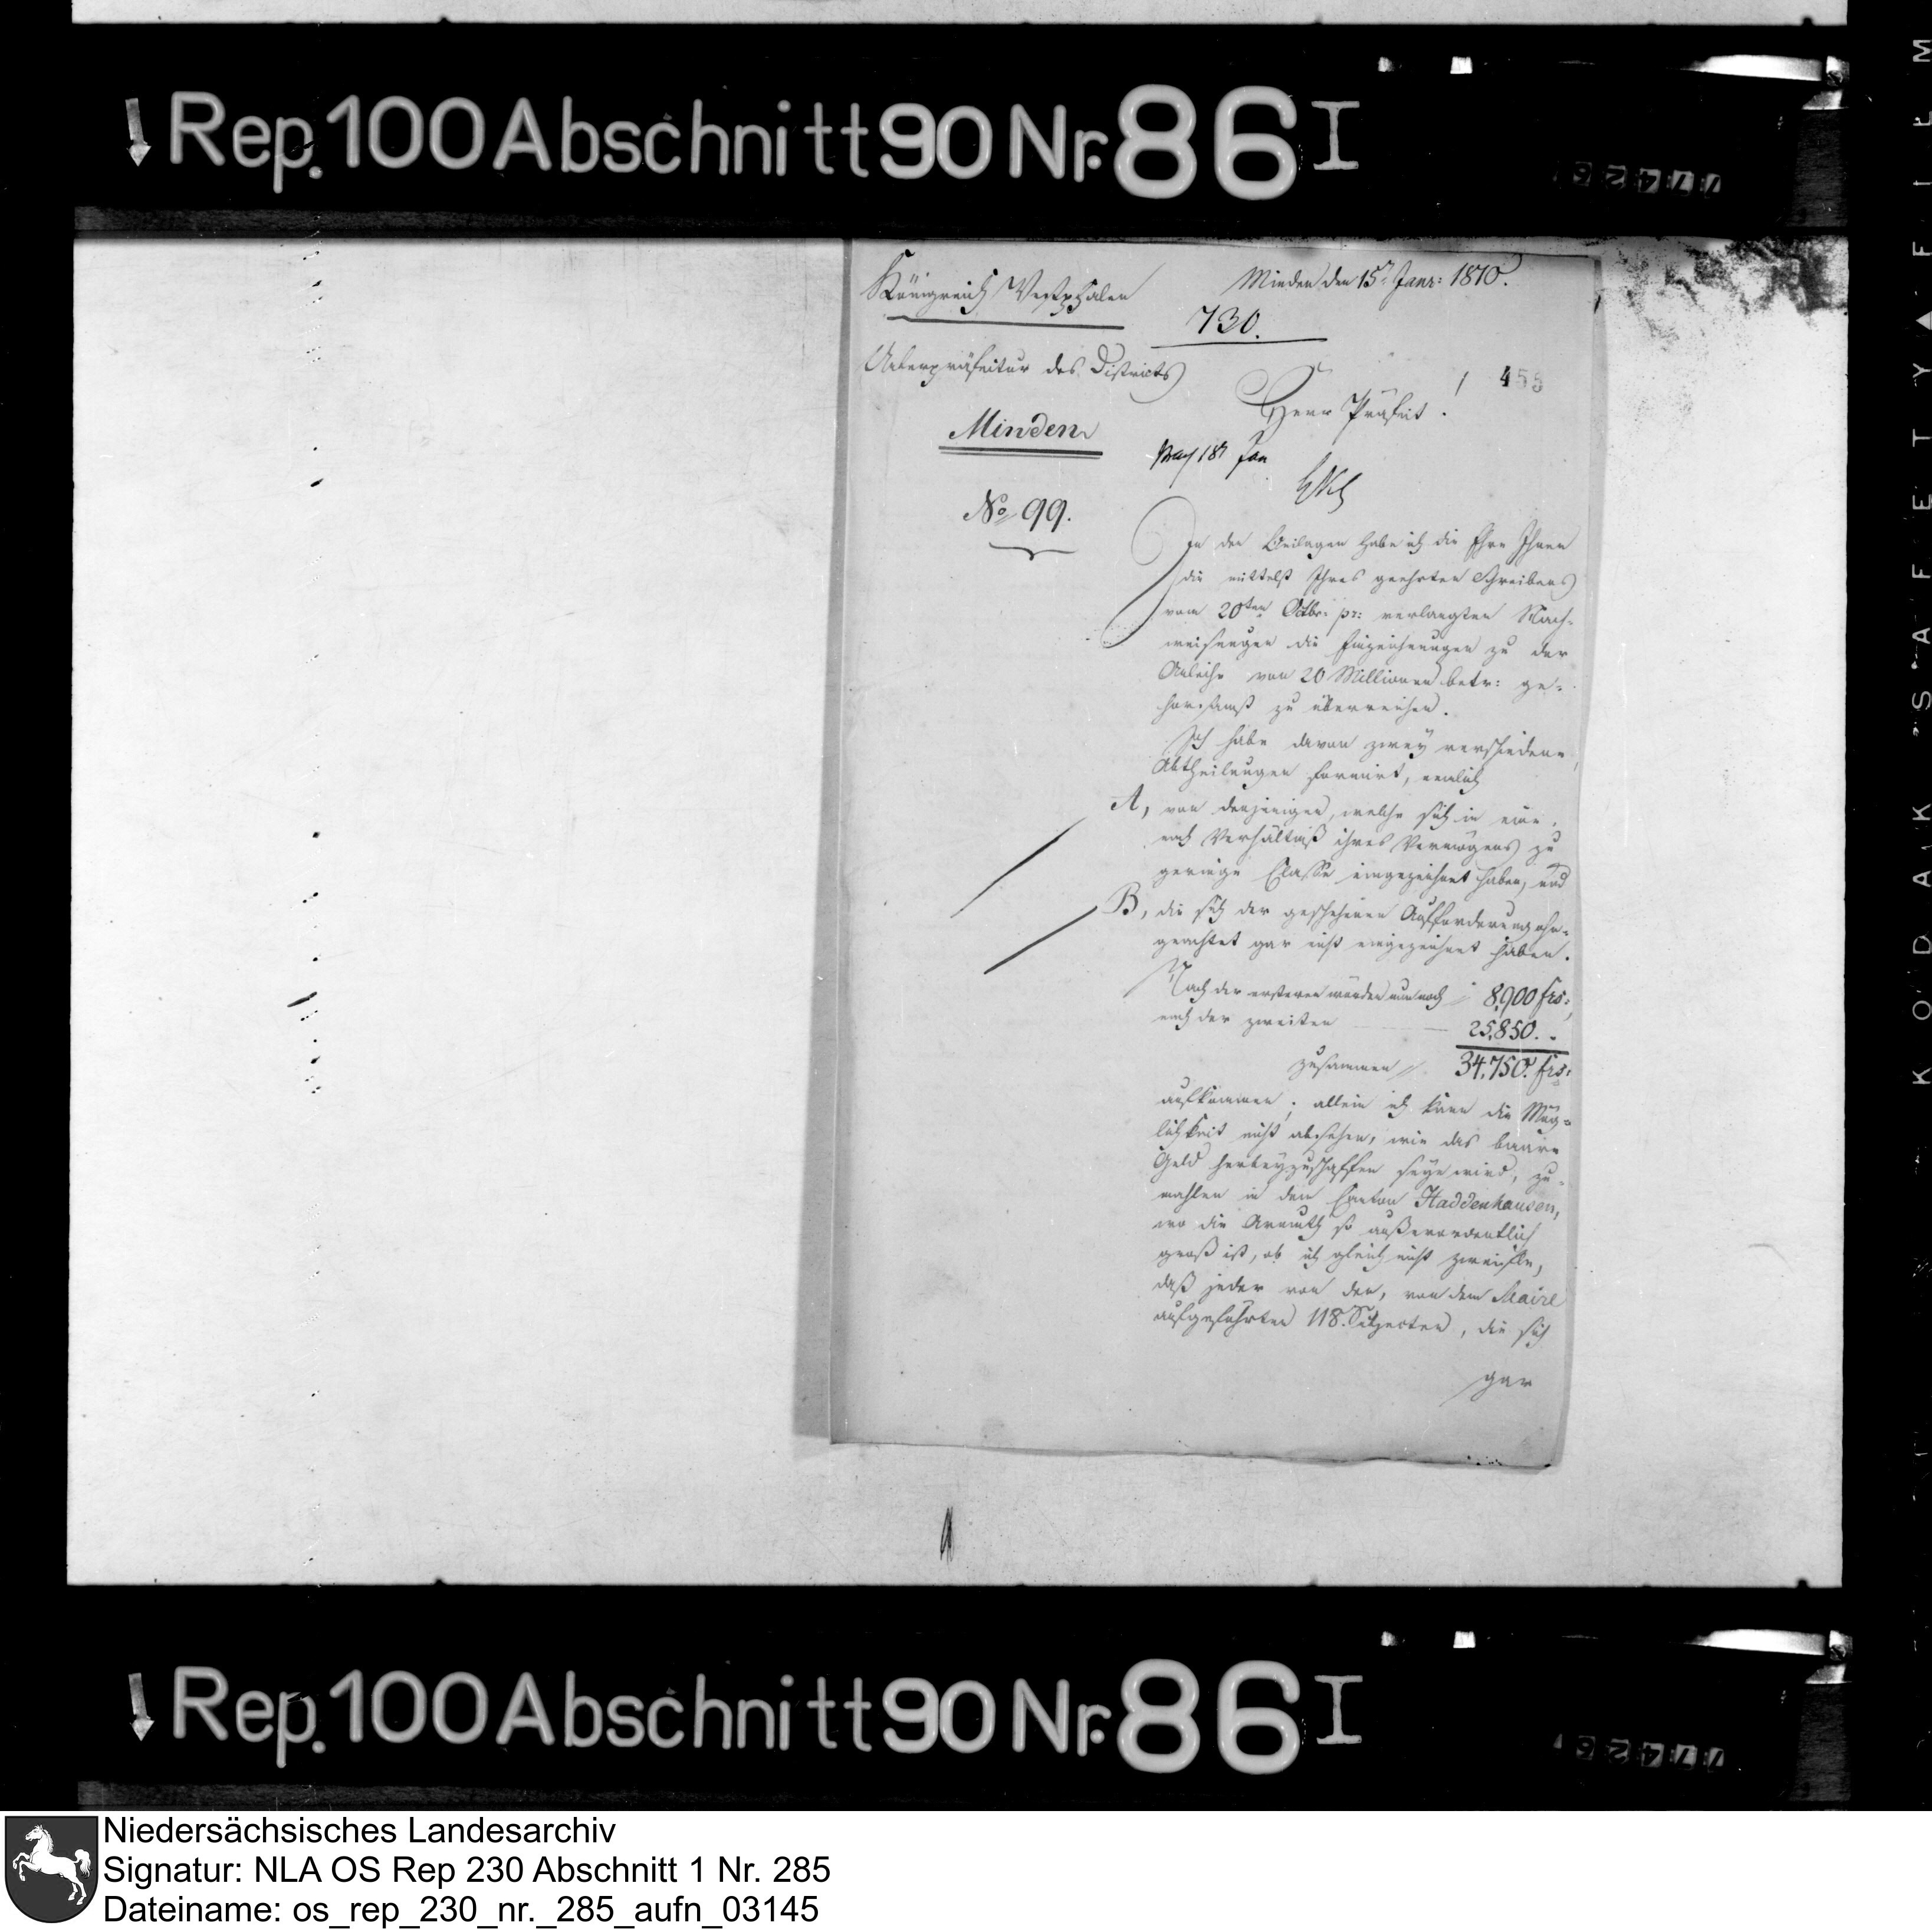 Rep. 100 Abschnitt 90 Nr. 86 I
Königreich Westphalen
Minden den 15t Janr: 1810.
730.
Unterpräfectur des Districts
455
Herr Präfect!
Minden
18t Jan
No 99.
In den Beilagen habe ich die Ehre Ihnen
die mittelst Ihres geehrten Schreibens
vom 20ten Octbr: pr: verlangten Nach-
weisungen die Einzeichnungen zu der
Anleihe von 20 Millionen betr: ge-
horsamst zu überreichen.
Ich habe davon zwey verschiedene
Abtheilungen formirt, nemlich
A, von denjenigen, welche sich in eine,
nach Verhältniß ihres Vermögens zu
geringe Classe eingezeichnet haben, und
B, die sich der geschehenen Aufforderung ohn-
geachtet gar nicht eingezeichnet haben.
Nach der ersteren würden nun noch 8,900 frs:,
nach der zweiten 25,850. -
zusammen 34,750. frs:
aufkommen; allein ich kann die Mög-
lichkeit nicht absehen, wie das baare
Geld herbeyzuschaffen seyn wird, zu-
mahlen in dem Canton Haddenhausen,
wo die Armuth so außerordentlich
groß ist, ob ich gleich nicht zweifle,
daß jeder von den, von dem Maire
aufgeführten 118. Subjecten, die sich
gar
Rep. 100 Abschnitt 90 Nr. 86 I
KODAK SAFETY FILM
Niedersächsisches Landesarchiv
Signatur: NLA OS Rep 230 Abschnitt 1 Nr. 285
Dateiname: os_rep_230_nr._285_aufn_03145